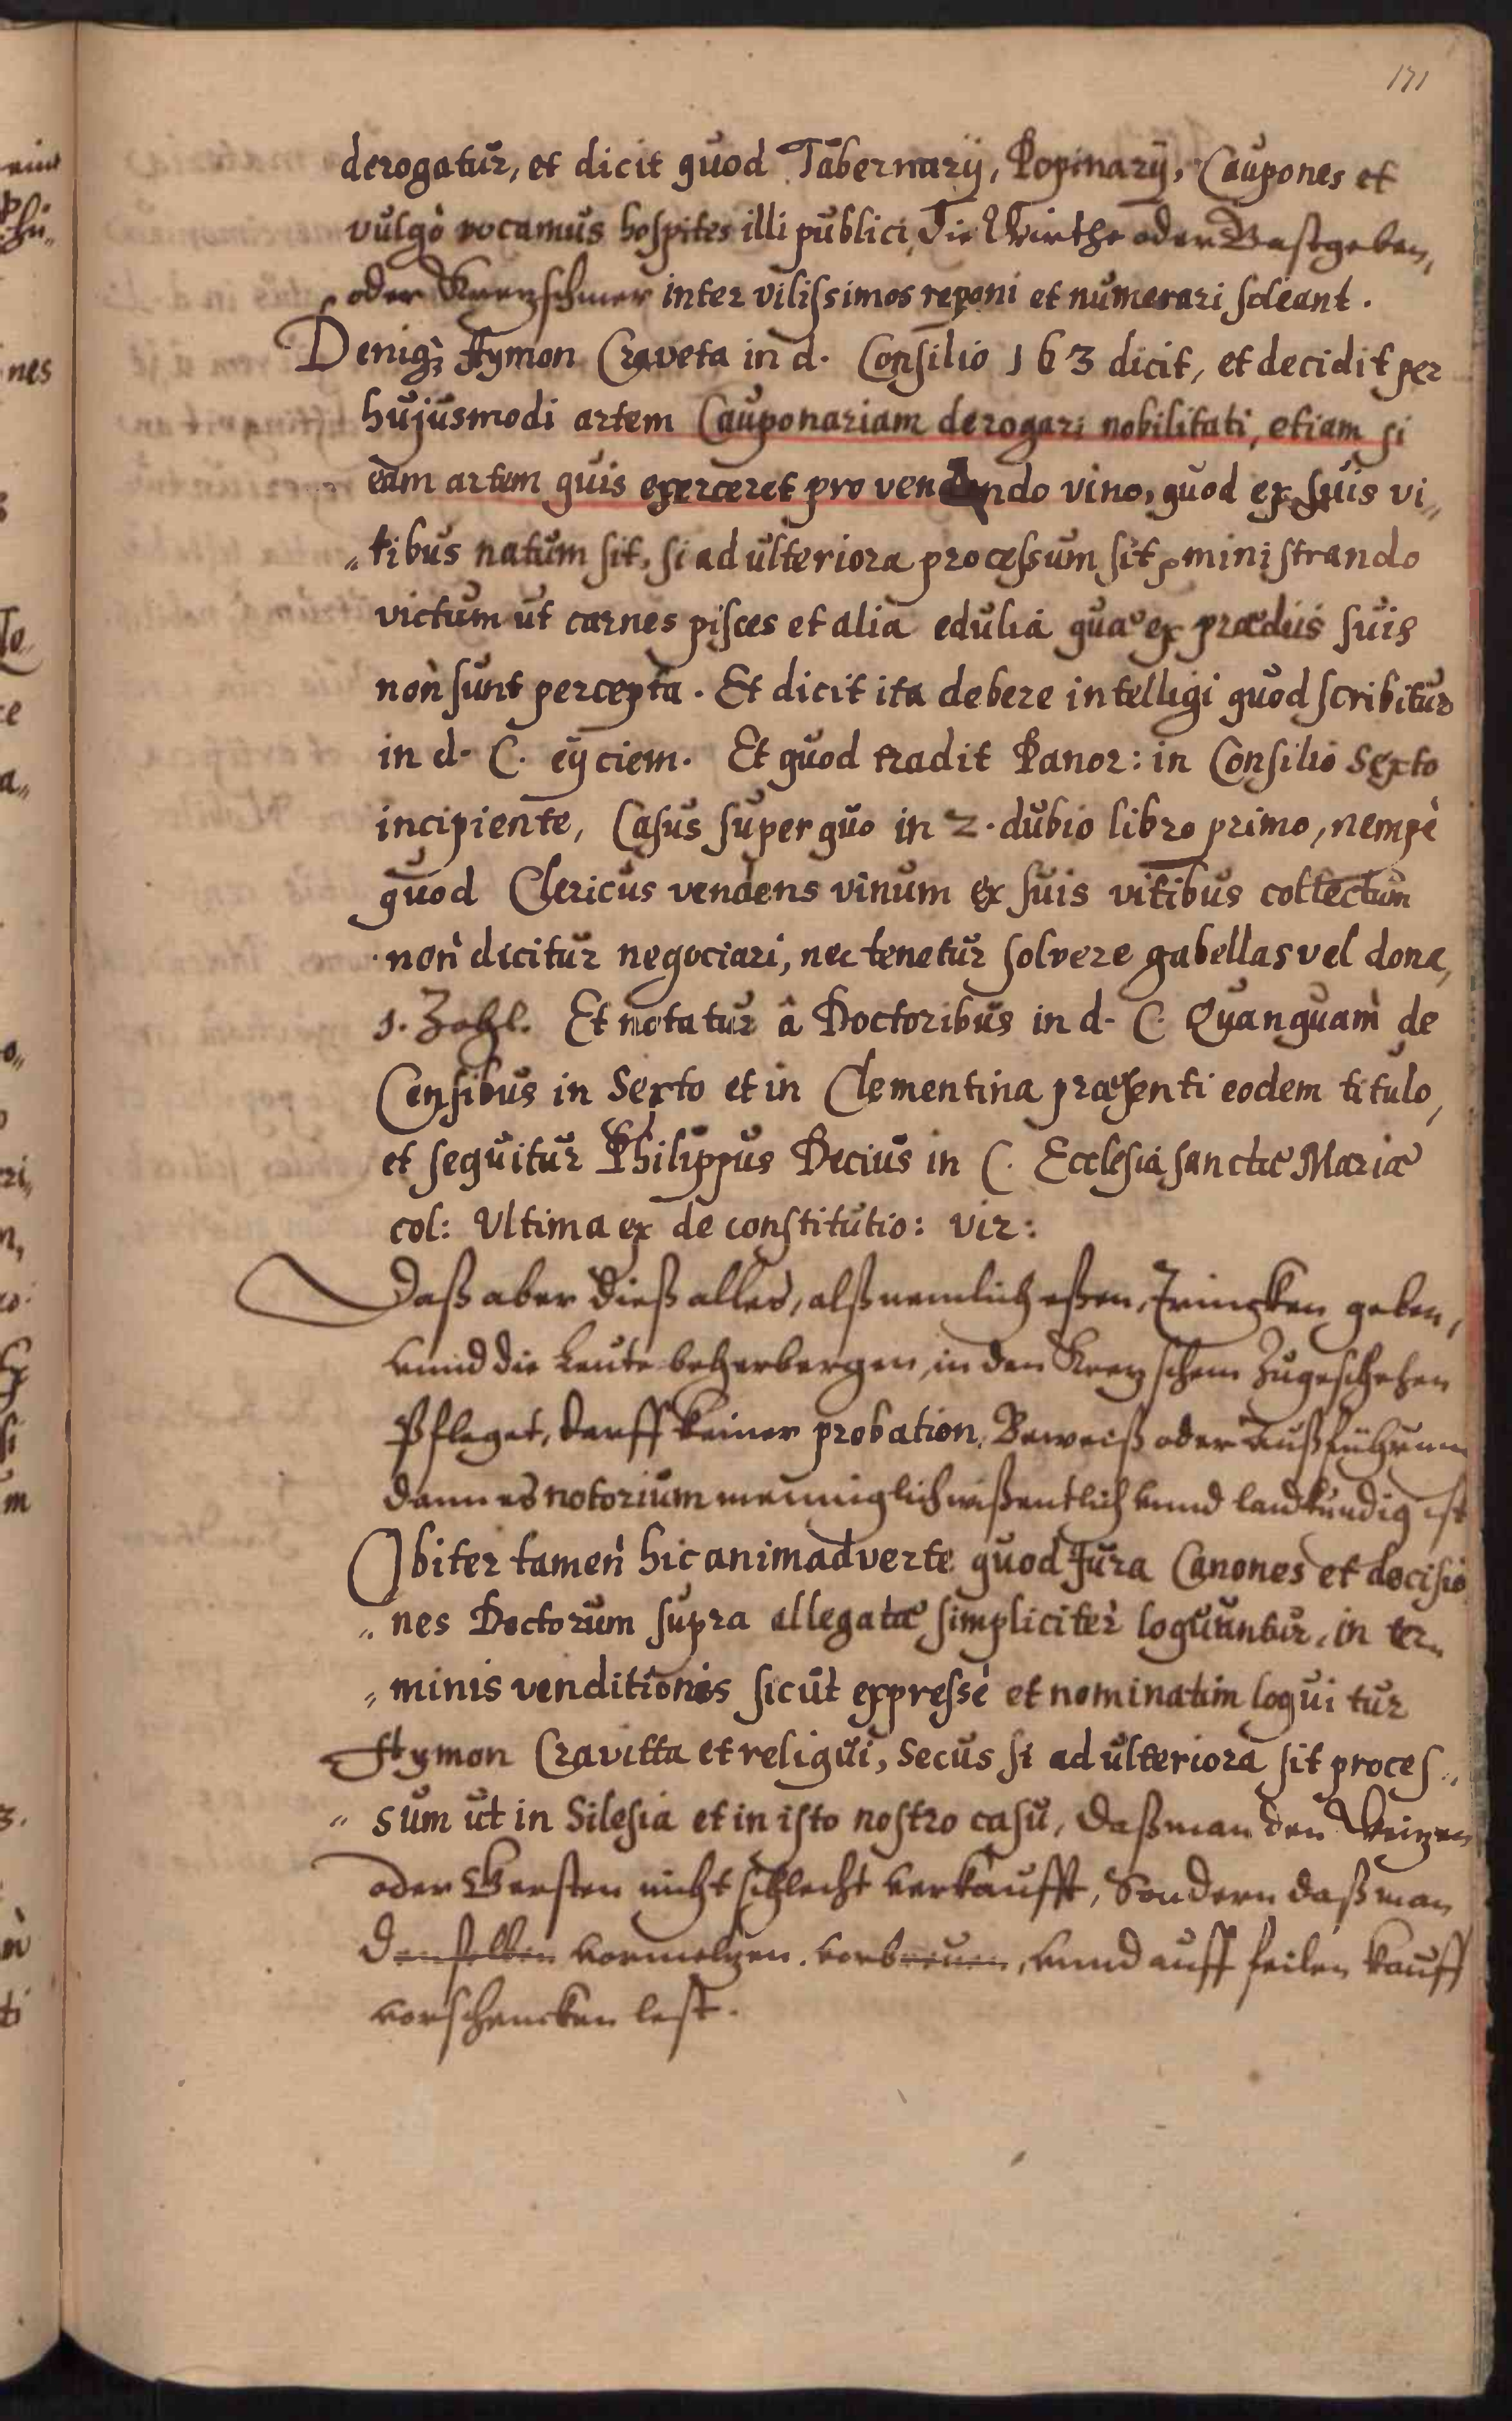 171
derogatur, et dicit quod Tabernarij, Popinarij, Caupones et
vulgò vocamus hospites illi publici, Die Wirthe oder Gastgeben,
oder Kretzschmer inter vilissimos reponi et numerari soleant.
Deniq; Aymon Craveta in d. Consilio 163 dicit, et decidit per
hujusmodi artem Cauponariam derogari nobilitati, etiam si
eam artem quis exerceret pro vendendo vino, quod ex suis vi„
„tibus natum sit, si ad ulteriora processum sit, ministrando
victum ut carnes pisces et alia edulia quae ex praediis suis
non sunt percepta. Et dicit ita debere intelligi quod scribitur
in d. C. eijciem. Et quod tradit Panor: in Consilio Sexto
incipiente, Casus super quo in 2. dubio libro primo, nempè
quod Clericus vendens vinum ex suis vitibus collectum
non dicitur negociari, nec tenetur solvere gabellas vel dona,
s. Zohl. Et notatur â Doctoribus in d. C. Quanquam de
Censibus in Sexto et in Clementina praesenti eodem titulo,
et sequitur Philippus Decius in C. Ecclesia sanctae Mariae
col: Ultima ex de constitutio: vir:
Daß aber dieß alles, alß nemlich eßen, Trincken geben,
unnd die Leute beherbergen, in den Kretzschem zugeschehen
Pfleget, darff keiner probation, Beweiß oder Außführung
dann es notorium menniglich wißentlich unnd landkundig ist
Obiter tamen hic animadverte quod Jura Canones et decisio
„nes Doctorum supra allegatae simpliciter loquuntur, in ter„
„minis venditionis sicut expressè et nominatim loquitur
Aymon Cravitta et reliqui, Secus si ad ulteriora sit proces„
„sum ut in Silesia et in isto nostro casu, Daß man den Weitzen
oder Gersten nicht schlecht verkaufft, Sondern daß man
denselben vormeltzen, vorbreuen, unnd auff feilen kauff
vorschencken lest.